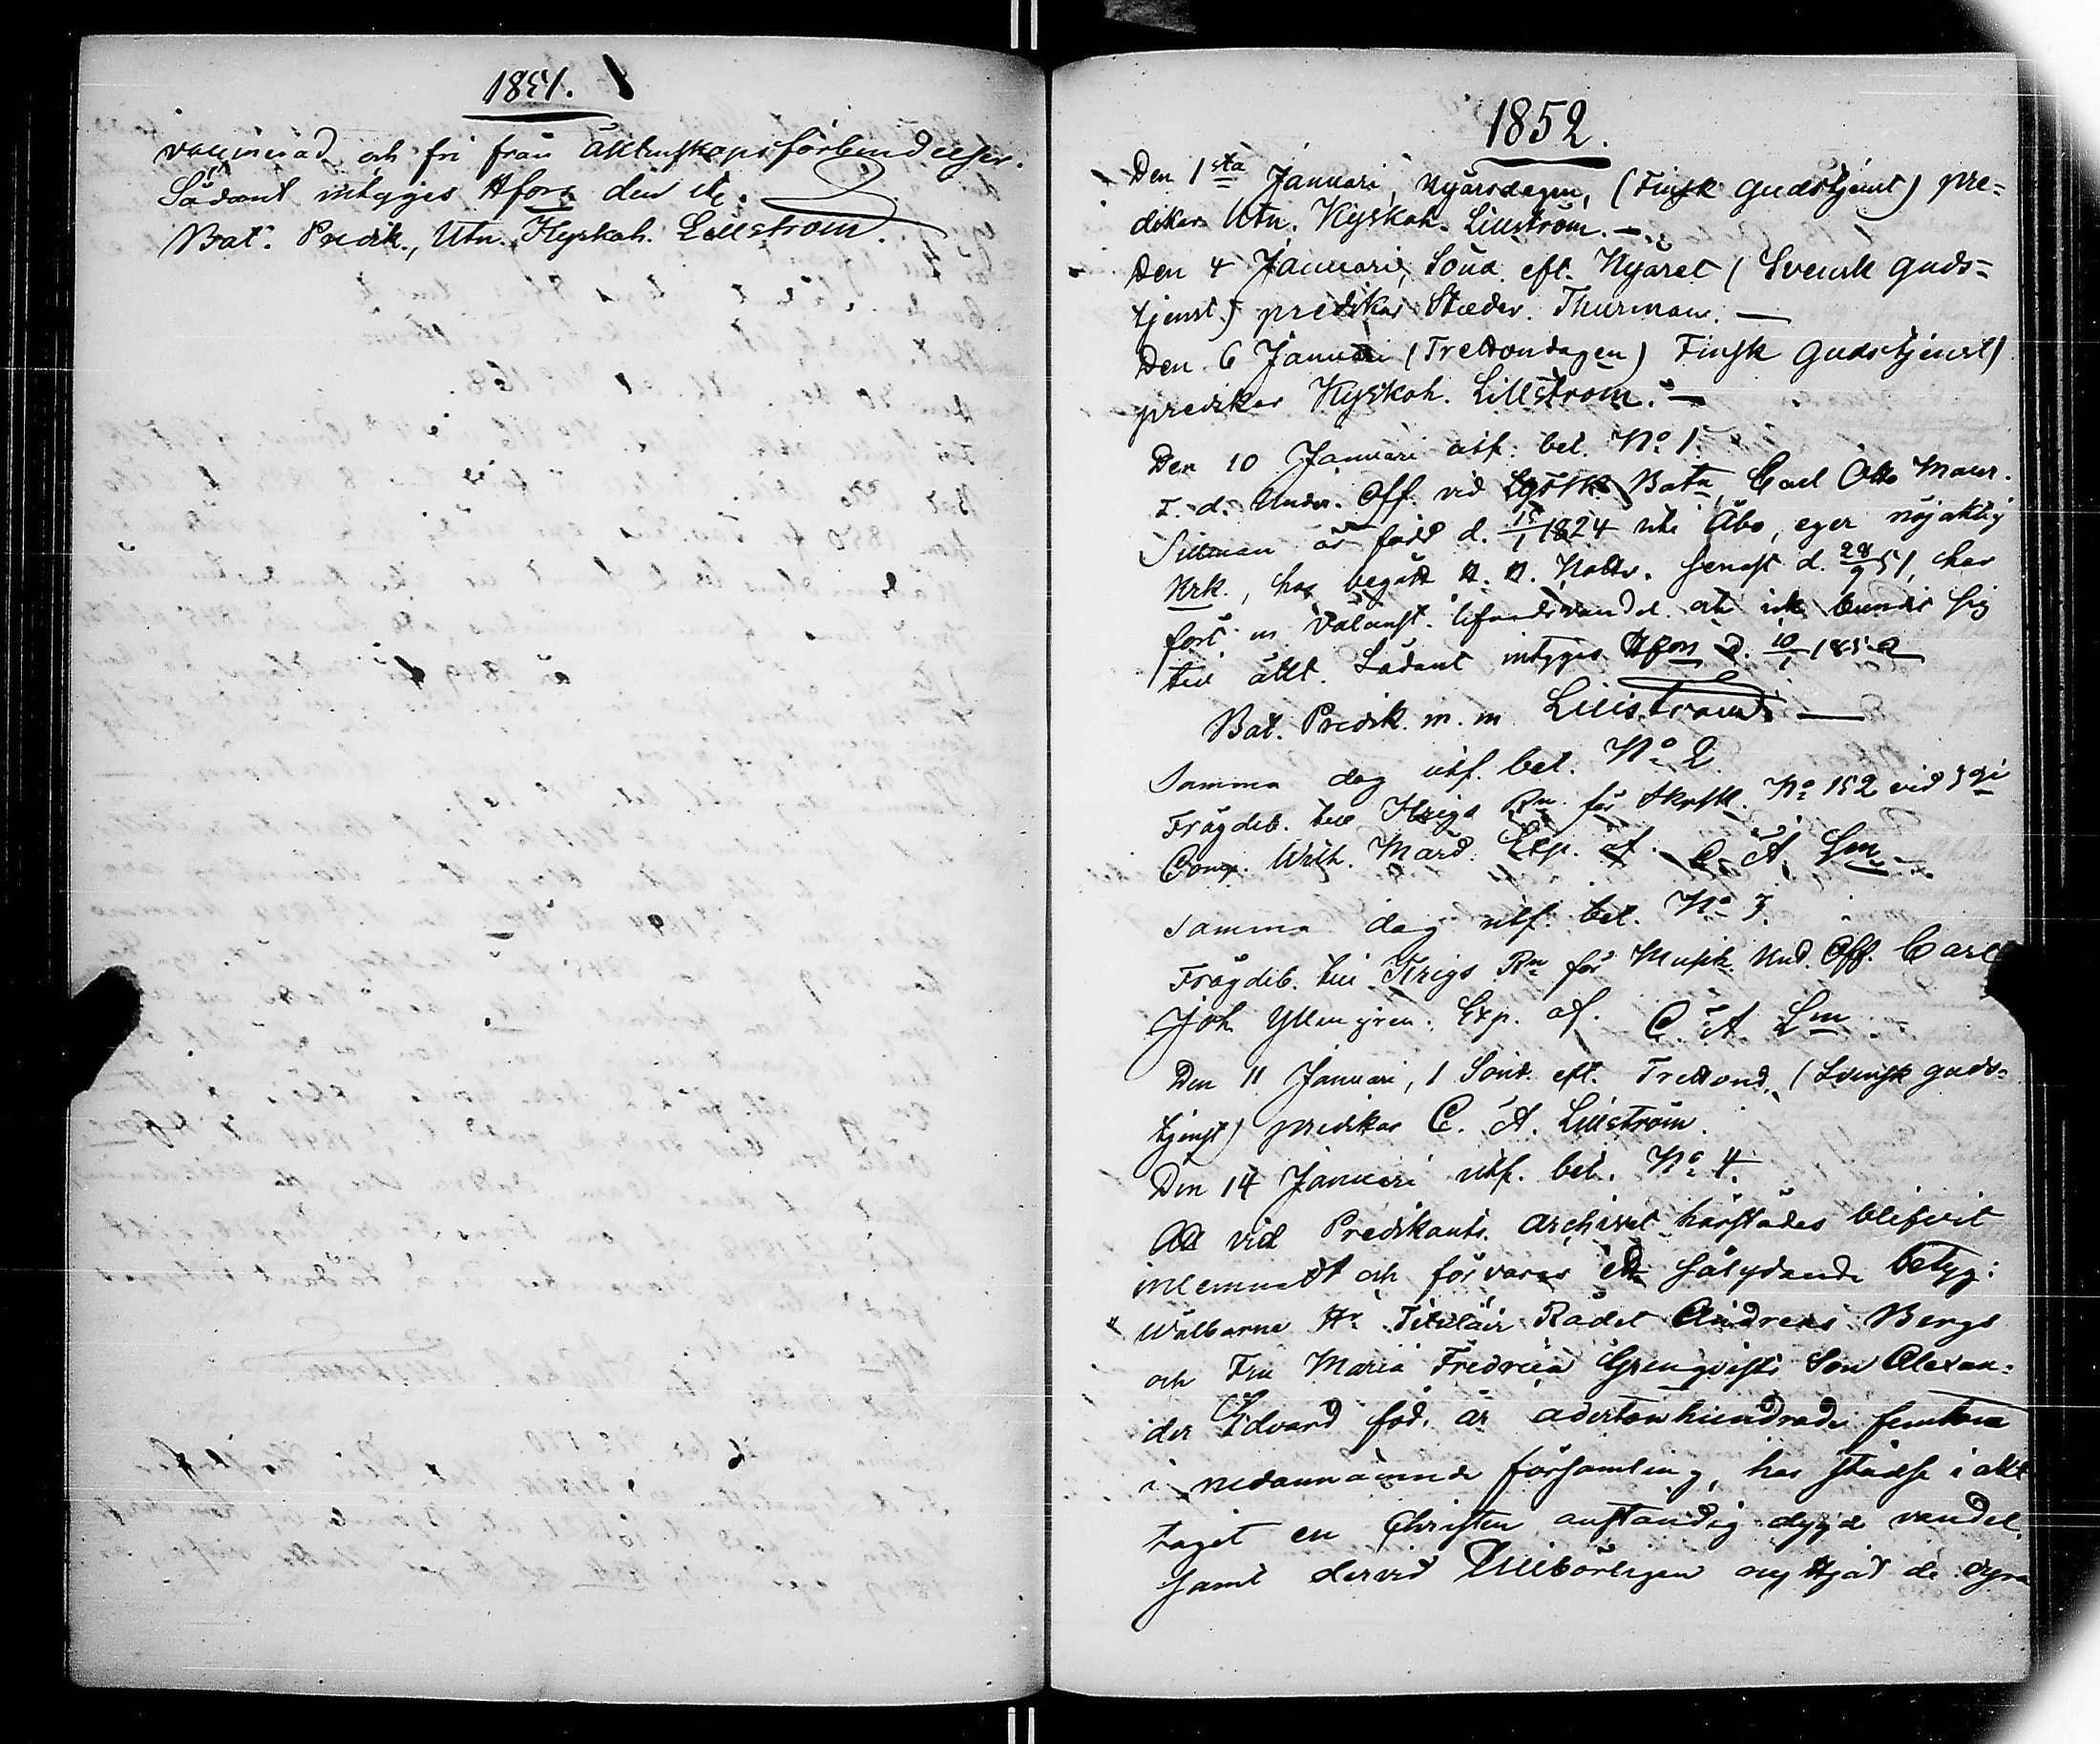 1851.
vaccinerad och fri från äktenskapsförbindelser.
Sådant intygas Hfors den etc.
Bat. Predik., Utn. Kyrkoh. Lillström.
1852.
Den 1sta Januari, Nyårsdagen, (Finsk gudstjenst) pre=
dikar Utn. Kyrkoh. Lillström. —
Den 4 Januari, Sönd. eft. Nyåret (Svensk guds=
tjenst) predikar Studer. Thurman. —
Den 6 Januari (Trettondagen) Finsk Gudstjenst)
predikar Kyrkoh. Lillström. —
Den 10 Januari utf. bet. No 1.
F. d. Under. Off. vid Batn Carl Otto Maur.
Sillman är född d. 15/1 1824 uti Åbo, eger nöjaktig
Krk., har begått H. H. Nattv. senast d. 28/9 51, har
fört en välanst. lefnadsvandel och ick bundit sig
till äkt. Sådant intygas Hfors d. 10/1 1852
Bat. Predik. m. m Lillström. —
Samma dag utf. bet. No 2.
Frågdeb. till Krigs Rn för Skrfsk. No 152 vid 3dje
Comp. Wilh. Mård. Exp. af. C. A. Lm.
Samma dag utf. bet. No 3.
Frågdeb. till Krigs Rn för Musik Und. Off. Carl
Joh Yllengren. Exp. af. C. A. Lm.
Den 11 Januari, 1 Sönd. eft. Trettond. (Svensk guds=
tjenst) predikar C. A. Lillström.
Den 14 Januari utf. bet. No 4.
Att vid Predikants Archivet härstädes blifvit
inlemnadt och förvaras ett sålydande betyg:
" Wälborne Hr Titulair Rådet Andreas Bergs
och Fru Maria Fredrica Grenqvists Son Alexan=
der Edvard föd. år adertonhundrade femton
i nedannämnde församling, har städse i akt
taget en Christen anständig dygde vandel,
samt dervid tillbörligen nyttjat de dyra